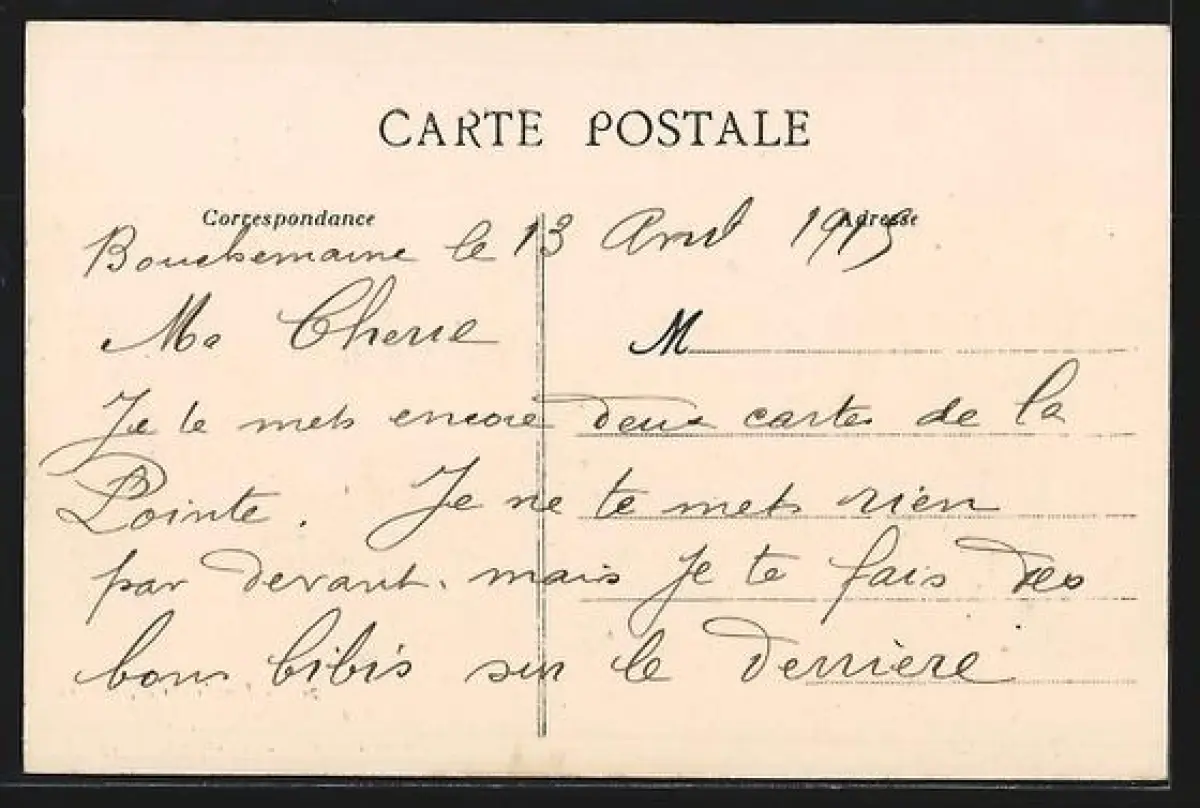 CARTE POSTALE
Correspondance
Adresse
Bouchemaine le 13 Avril 1915
Ma Cherie
M
Je te mets encore deux cartes de la
Pointe. Je ne te mets rien
par devant. mais je te fais des
bons bibis sur le derrière